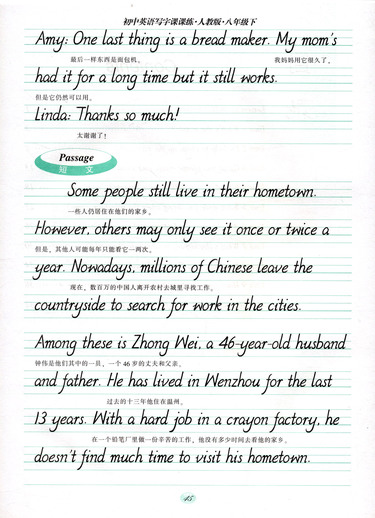 初中英语写字课课练·人教版·八年级下
Amy: One last thing is a bread maker. My mom's
最后一样东西是面包机。 我妈妈用它很久了，
had it for a long time but it still works.
但是它仍然可以用。
Linda: Thanks so much!
太谢谢了！
Passage
短 文
Some people still live in their hometown.
一些人仍居住在他们的家乡。
However, others may only see it once or twice a
但是，其他人可能每年只能看它一两次。
year. Nowadays, millions of Chinese leave the
现在，数百万的中国人离开农村去城里寻找工作。
countryside to search for work in the cities.
Among these is Zhong Wei, a 46-year-old husband
钟伟是他们其中的一员，一个 46 岁的丈夫和父亲。
and father. He has lived in Wenzhou for the last
过去的十三年他住在温州。
13 years. With a hard job in a crayon factory, he
在一个铅笔厂里做一份辛苦的工作，他没有多少时间去看他的家乡。
doesn't find much time to visit his hometown.
45